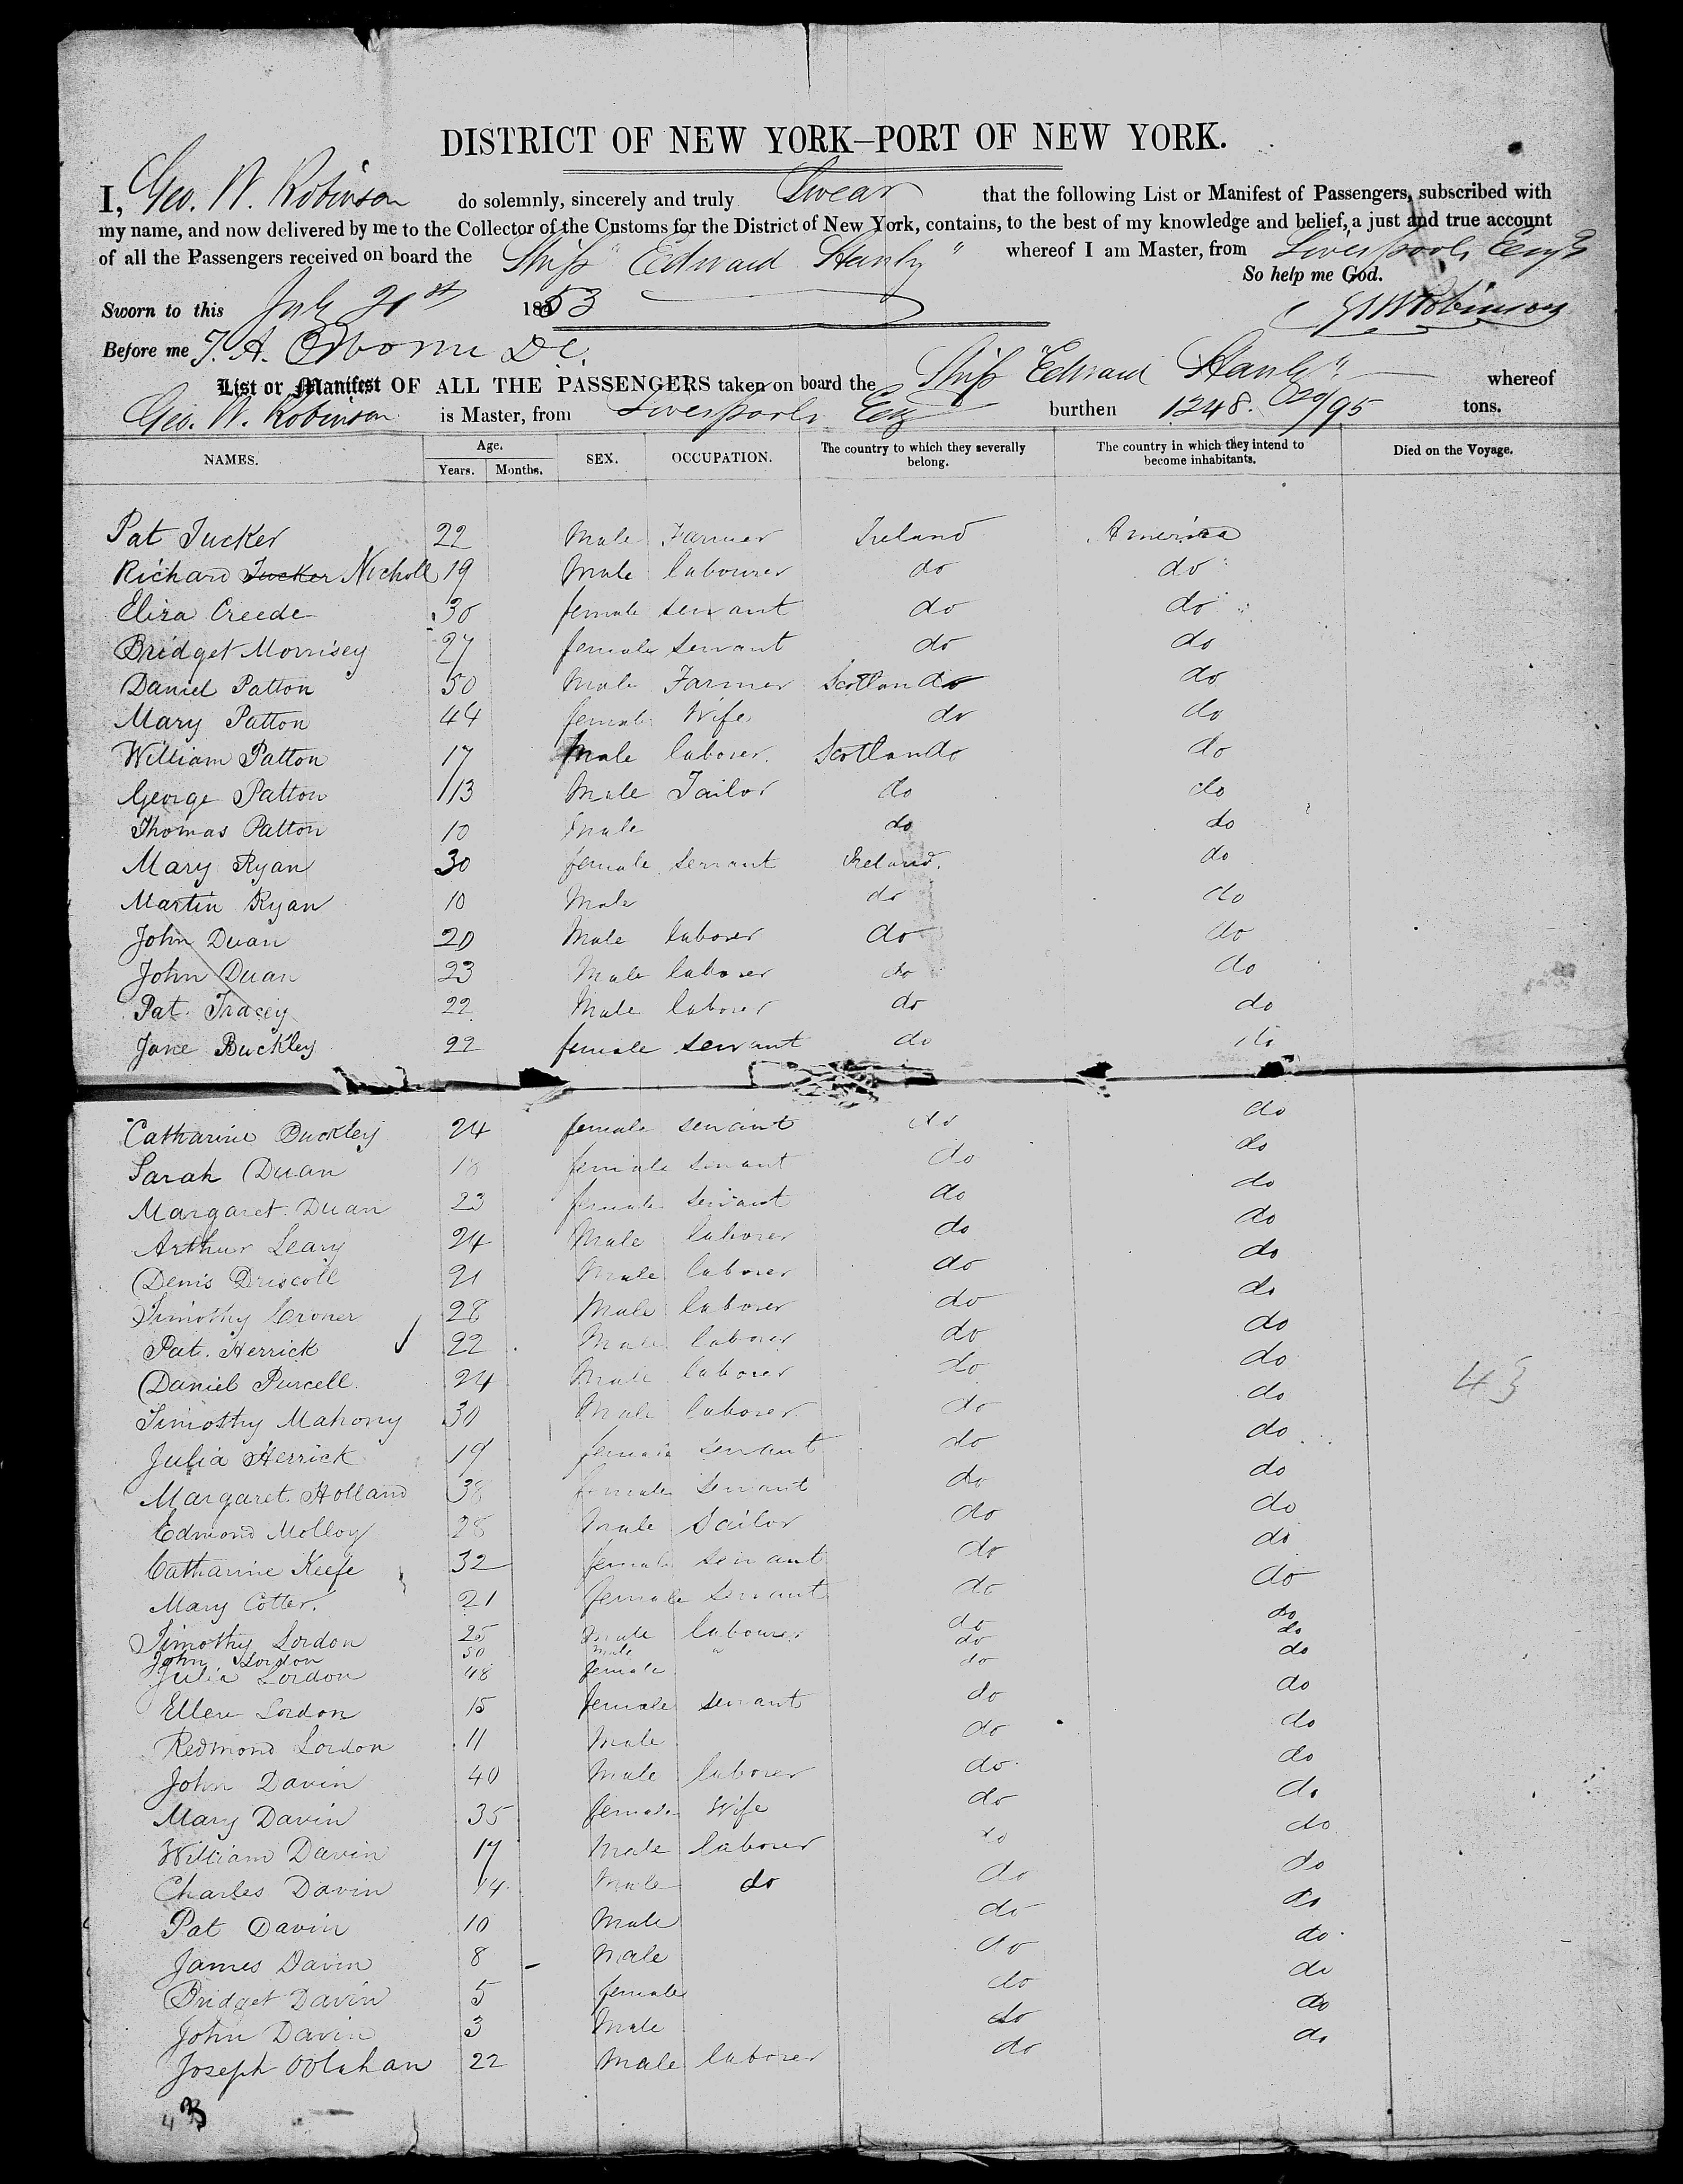 DISTRICT OF NEW YORK–PORT OF NEW YORK.
I, Geo. W. Robinson do solemnly, sincerely and truly Swear that the following List or Manifest of Passengers, subscribed with
my name, and now delivered by me to the Collector of the Customs for the District of New York, contains, to the best of my knowledge and belief, a just and true account
of all the Passengers received on board the Ship "Edward Stanly" whereof I am Master, from Liverpool, Eng
So help me God.
Sworn to this July 21st 1853 G W Robinson
Before me T. A. Osborne D.C.
List or Manifest OF ALL THE PASSENGERS taken on board the Ship "Edward Stanly" whereof
Geo. W. Robinson is Master, from Liverpool, Eng burthen 1248. /95 tons.
NAMES. Age. Years. Months. SEX. OCCUPATION. The country to which they severally belong. The country in which they intend to become inhabitants. Died on the Voyage.
Pat Tucker 22 Male Farmer Ireland America
Richard Tucker Nicholl 19 Male labourer do do
Eliza Creede 30 female servant do do
Bridget Morrisey 27 female servant do do
Daniel Patton 50 Male Farmer Scotland do
Mary Patton 44 female Wife do do
William Patton 17 Male laborer Scotland do
George Patton 13 Male Tailor do do
Thomas Patton 10 Male do do
Mary Ryan 30 female servant Ireland. do
Martin Ryan 10 Male do do
John Duan 20 Male laborer do do
John Duan 23 Male laborer do do
Pat. Tracey 22 Male laborer do do
Jane Buckley 22 female servant do do
Catharine Buckley 24 female servant do do
Sarah Duan 18 female servant do do
Margaret Duan 23 female servant do do
Arthur Leary 24 Male laborer do do
Denis Driscoll 21 Male laborer do do
Timothy Croner 28 Male laborer do do
Pat. Herrick 22 Male laborer do do
Daniel Purcell 24 Male laborer do do 43
Timothy Mahony 30 Male laborer do do
Julia Herrick 19 female servant do do
Margaret Holland 38 female servant do do
Edmond Molloy 28 Male Sailor do do
Catharine Keefe 32 female servant do do
Mary Cotter. 21 female servant do do
Timothy Lordon 25 Male labourer do do
John Lordon 50 Male " do do
Julia Lordon 48 female do do
Ellen Lordon 15 female servant do do
Redmond Lordon 11 Male do do
John Davin 40 Male laborer do do
Mary Davin 35 female Wife do do
William Davin 17 Male laborer do do
Charles Davin 14 Male do do do
Pat Davin 10 Male do do
James Davin 8 Male do do
Bridget Davin 5 female do do
John Davin 3 Male do do
Joseph Oolahan 22 Male laborer do do
43